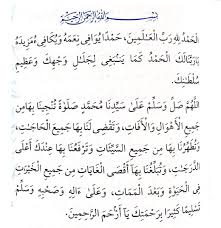 بِسْمِ اللهِ الرَّحْمٰنِ الرَّحِيْمِ
اَلْحَمْدُ لِلّٰهِ رَبِّ الْعَالَمِيْنَ، حَمْدًا يُوَافِي نِعَمَهُ وَيُكَافِي مَزِيْدَهُ
يَارَبَّنَالَكَ الْحَمْدُ كَمَا يَنْبَغِي لِجَلَالِ وَجْهِكَ وَعَظِيْمِ
سُلْطَانِكَ.
اَللّٰهُمَّ صَلِّ وَسَلِّمْ عَلَى سَيِّدِنَا مُحَمَّدٍ صَلَاةً تُنْجِيْنَا بِهَامِنْ
جَمِيْعِ الْاَهْوَالِ وَالْاٰفَاتِ، وَتَقْضِى لَنَا بِهَا جَمِيْعَ الْحَاجَاتِ،
وَتُطَهِّرُنَا بِهَا مِنْ جَمِيْعِ السَّيِّئَاتِ وَتَرْفَعُنَا بِهَا عِنْدَكَ اَعْلَى
الدَّرَجَاتِ، وَتُبَلِّغُنَا بِهَا اَقْصَى الْغَايَاتِ مِنْ جَمِيْعِ الْخَيْرَاتِ
فِى الْحَيٰوةِ وَبَعْدَ الْمَمَاتِ، وَعَلَى اٰلِهِ وَصَحْبِهِ وَسَلِّمْ
تَسْلِيْمًا كَثِيْرًا بِرَحْمَتِكَ يَا اَرْحَمَ الرَّاحِمِيْنَ.